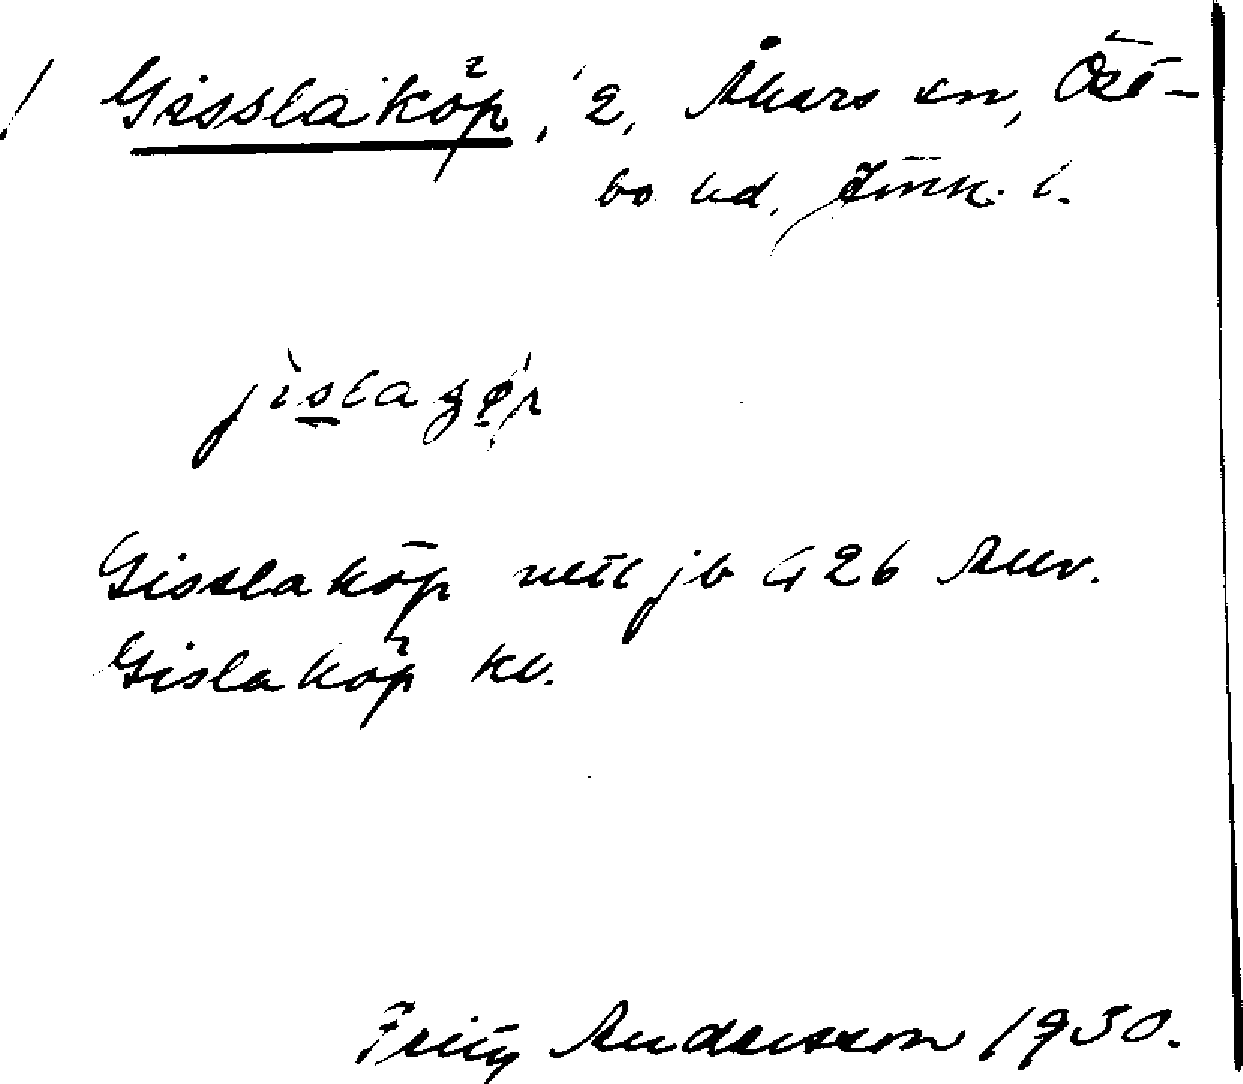 / Gisslaköp, 2, Åkers sn, Öst-
bo hd, Jönk. l.
jìslagə́p
Gisslaköp uttl jb 426 Allv.
Gislaköp kb.
Fritz Andersson 1930.